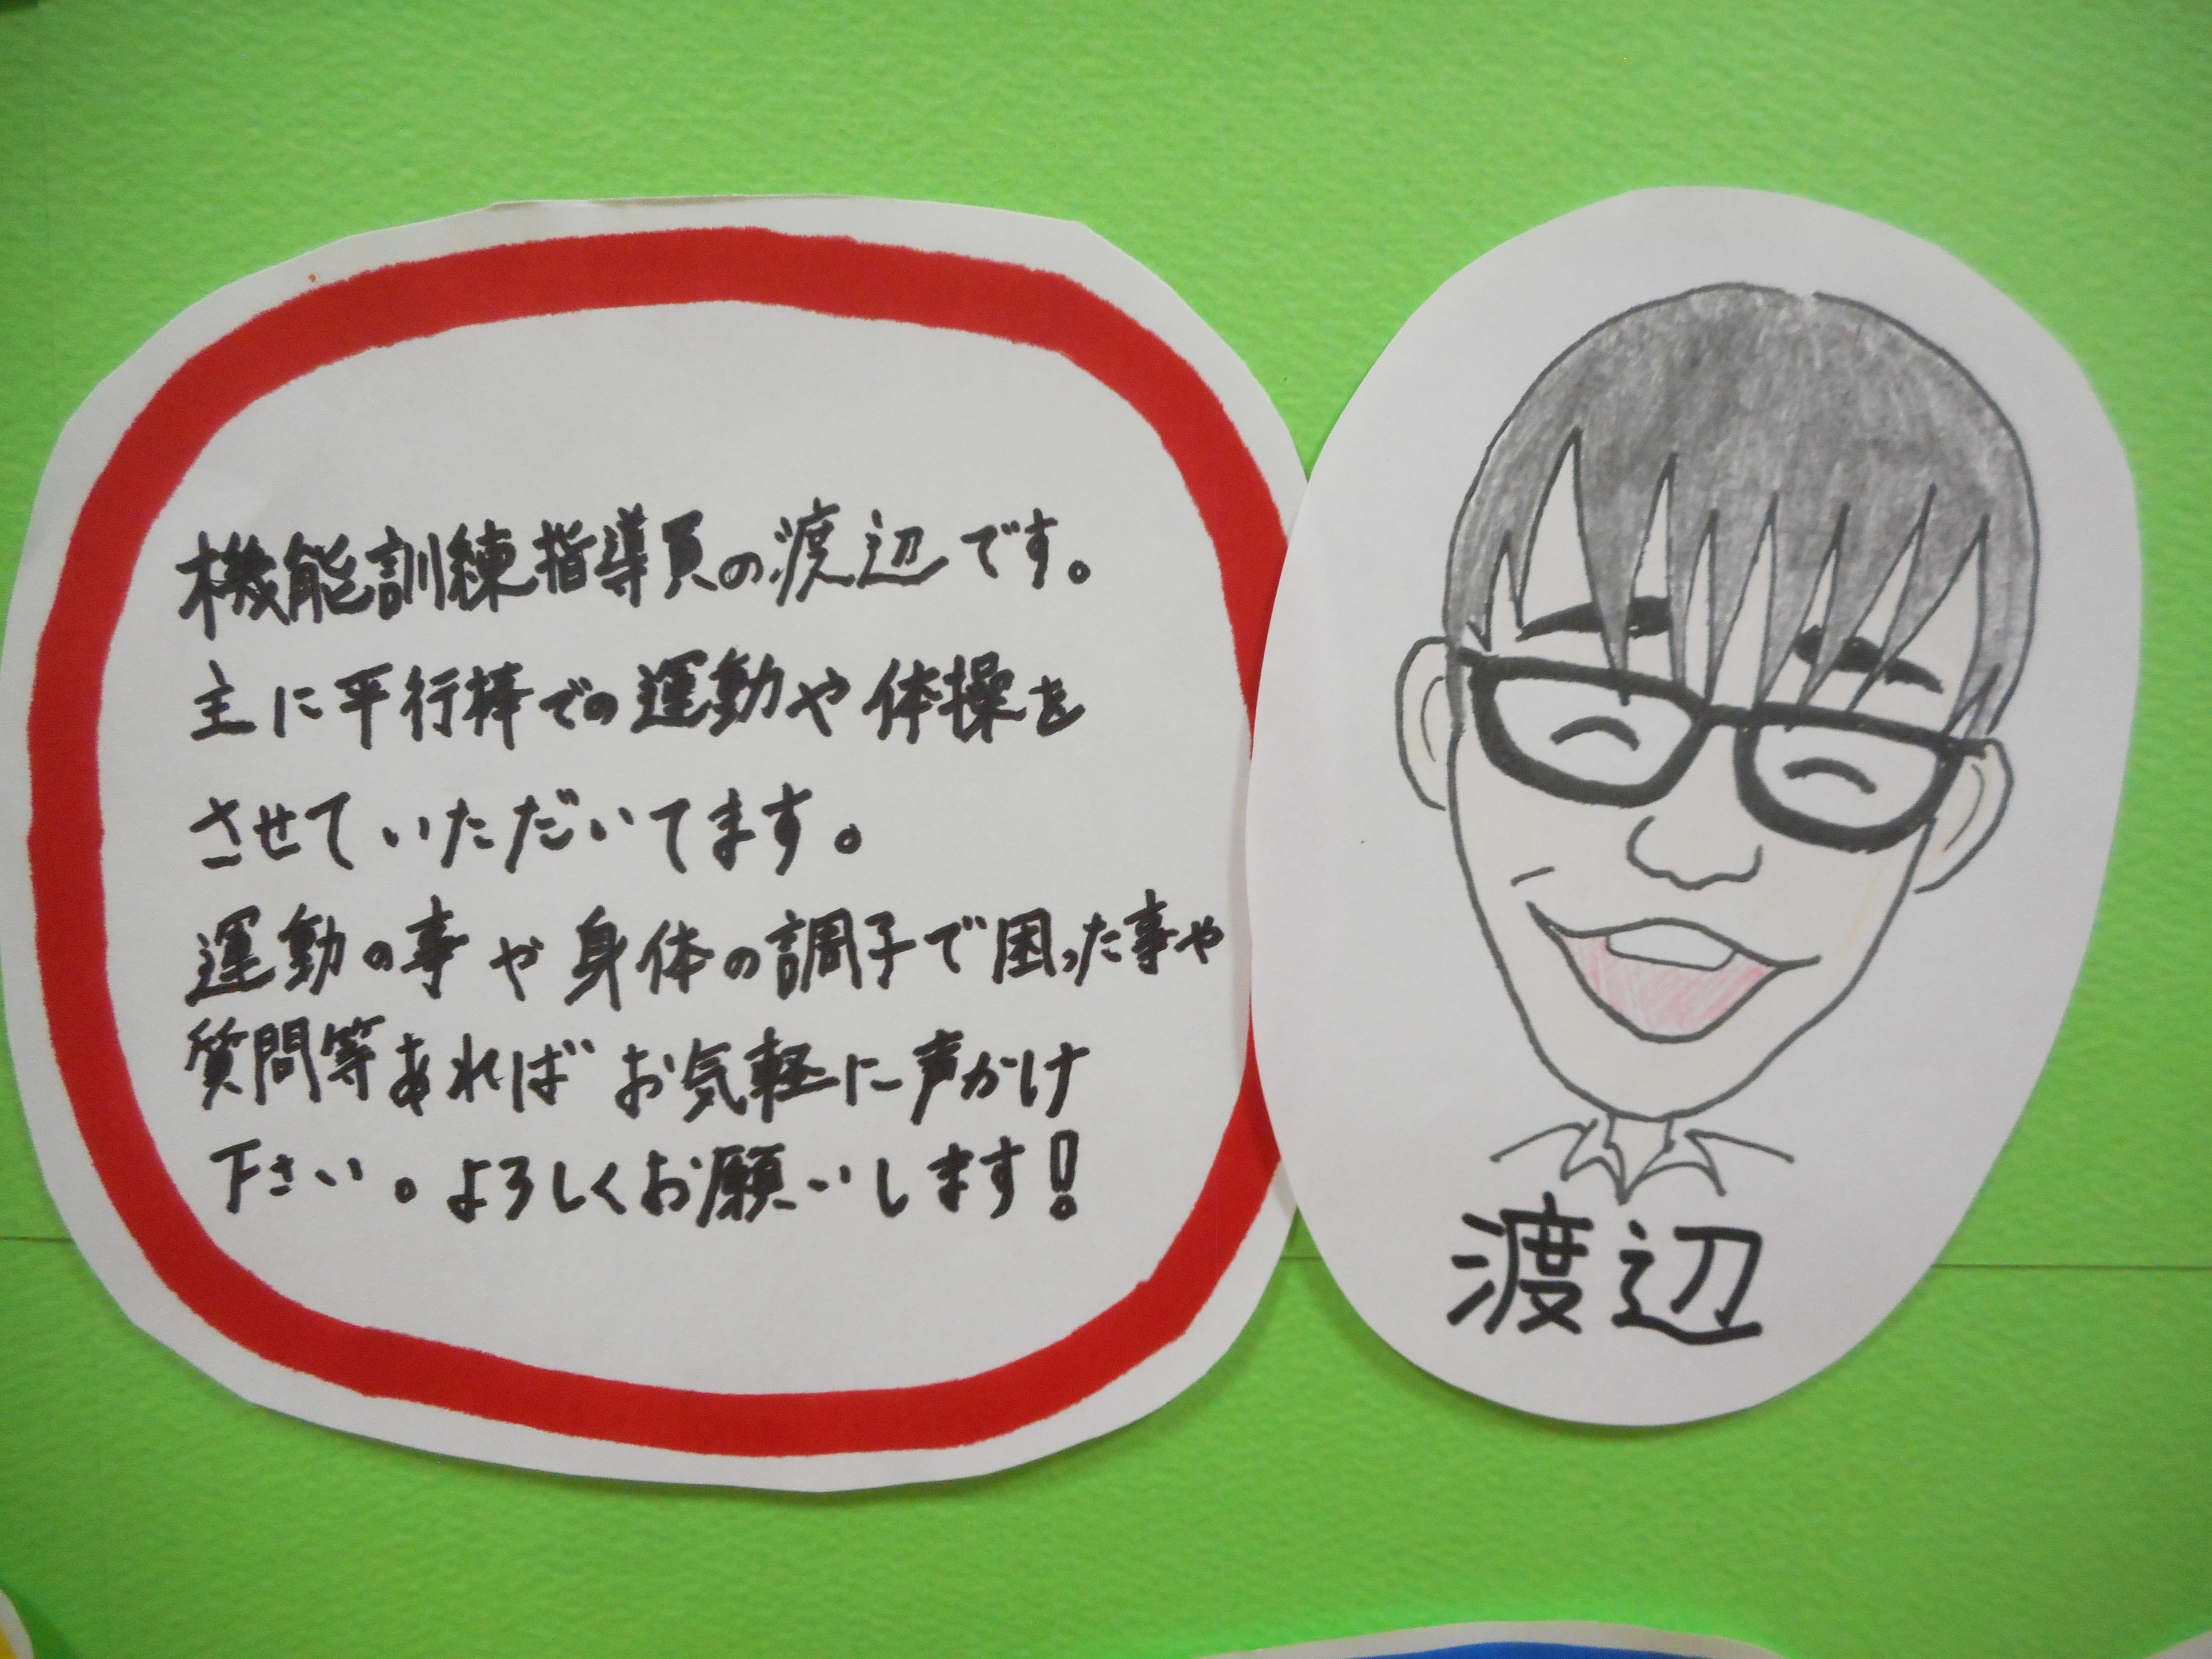 機能訓練指導員の渡辺です。
主に平行棒での運動や体操を
させていただいてます。
運動の事や身体の調子で困った事や
質問等あればお気軽に声かけ
下さい。よろしくお願いします!
渡辺